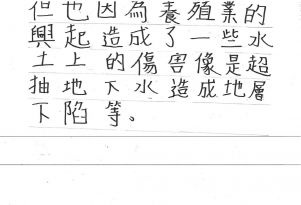 但也因為養殖業的
興起造成了一些水
土上的傷害像是超
抽地下水造成地層
下陷等。